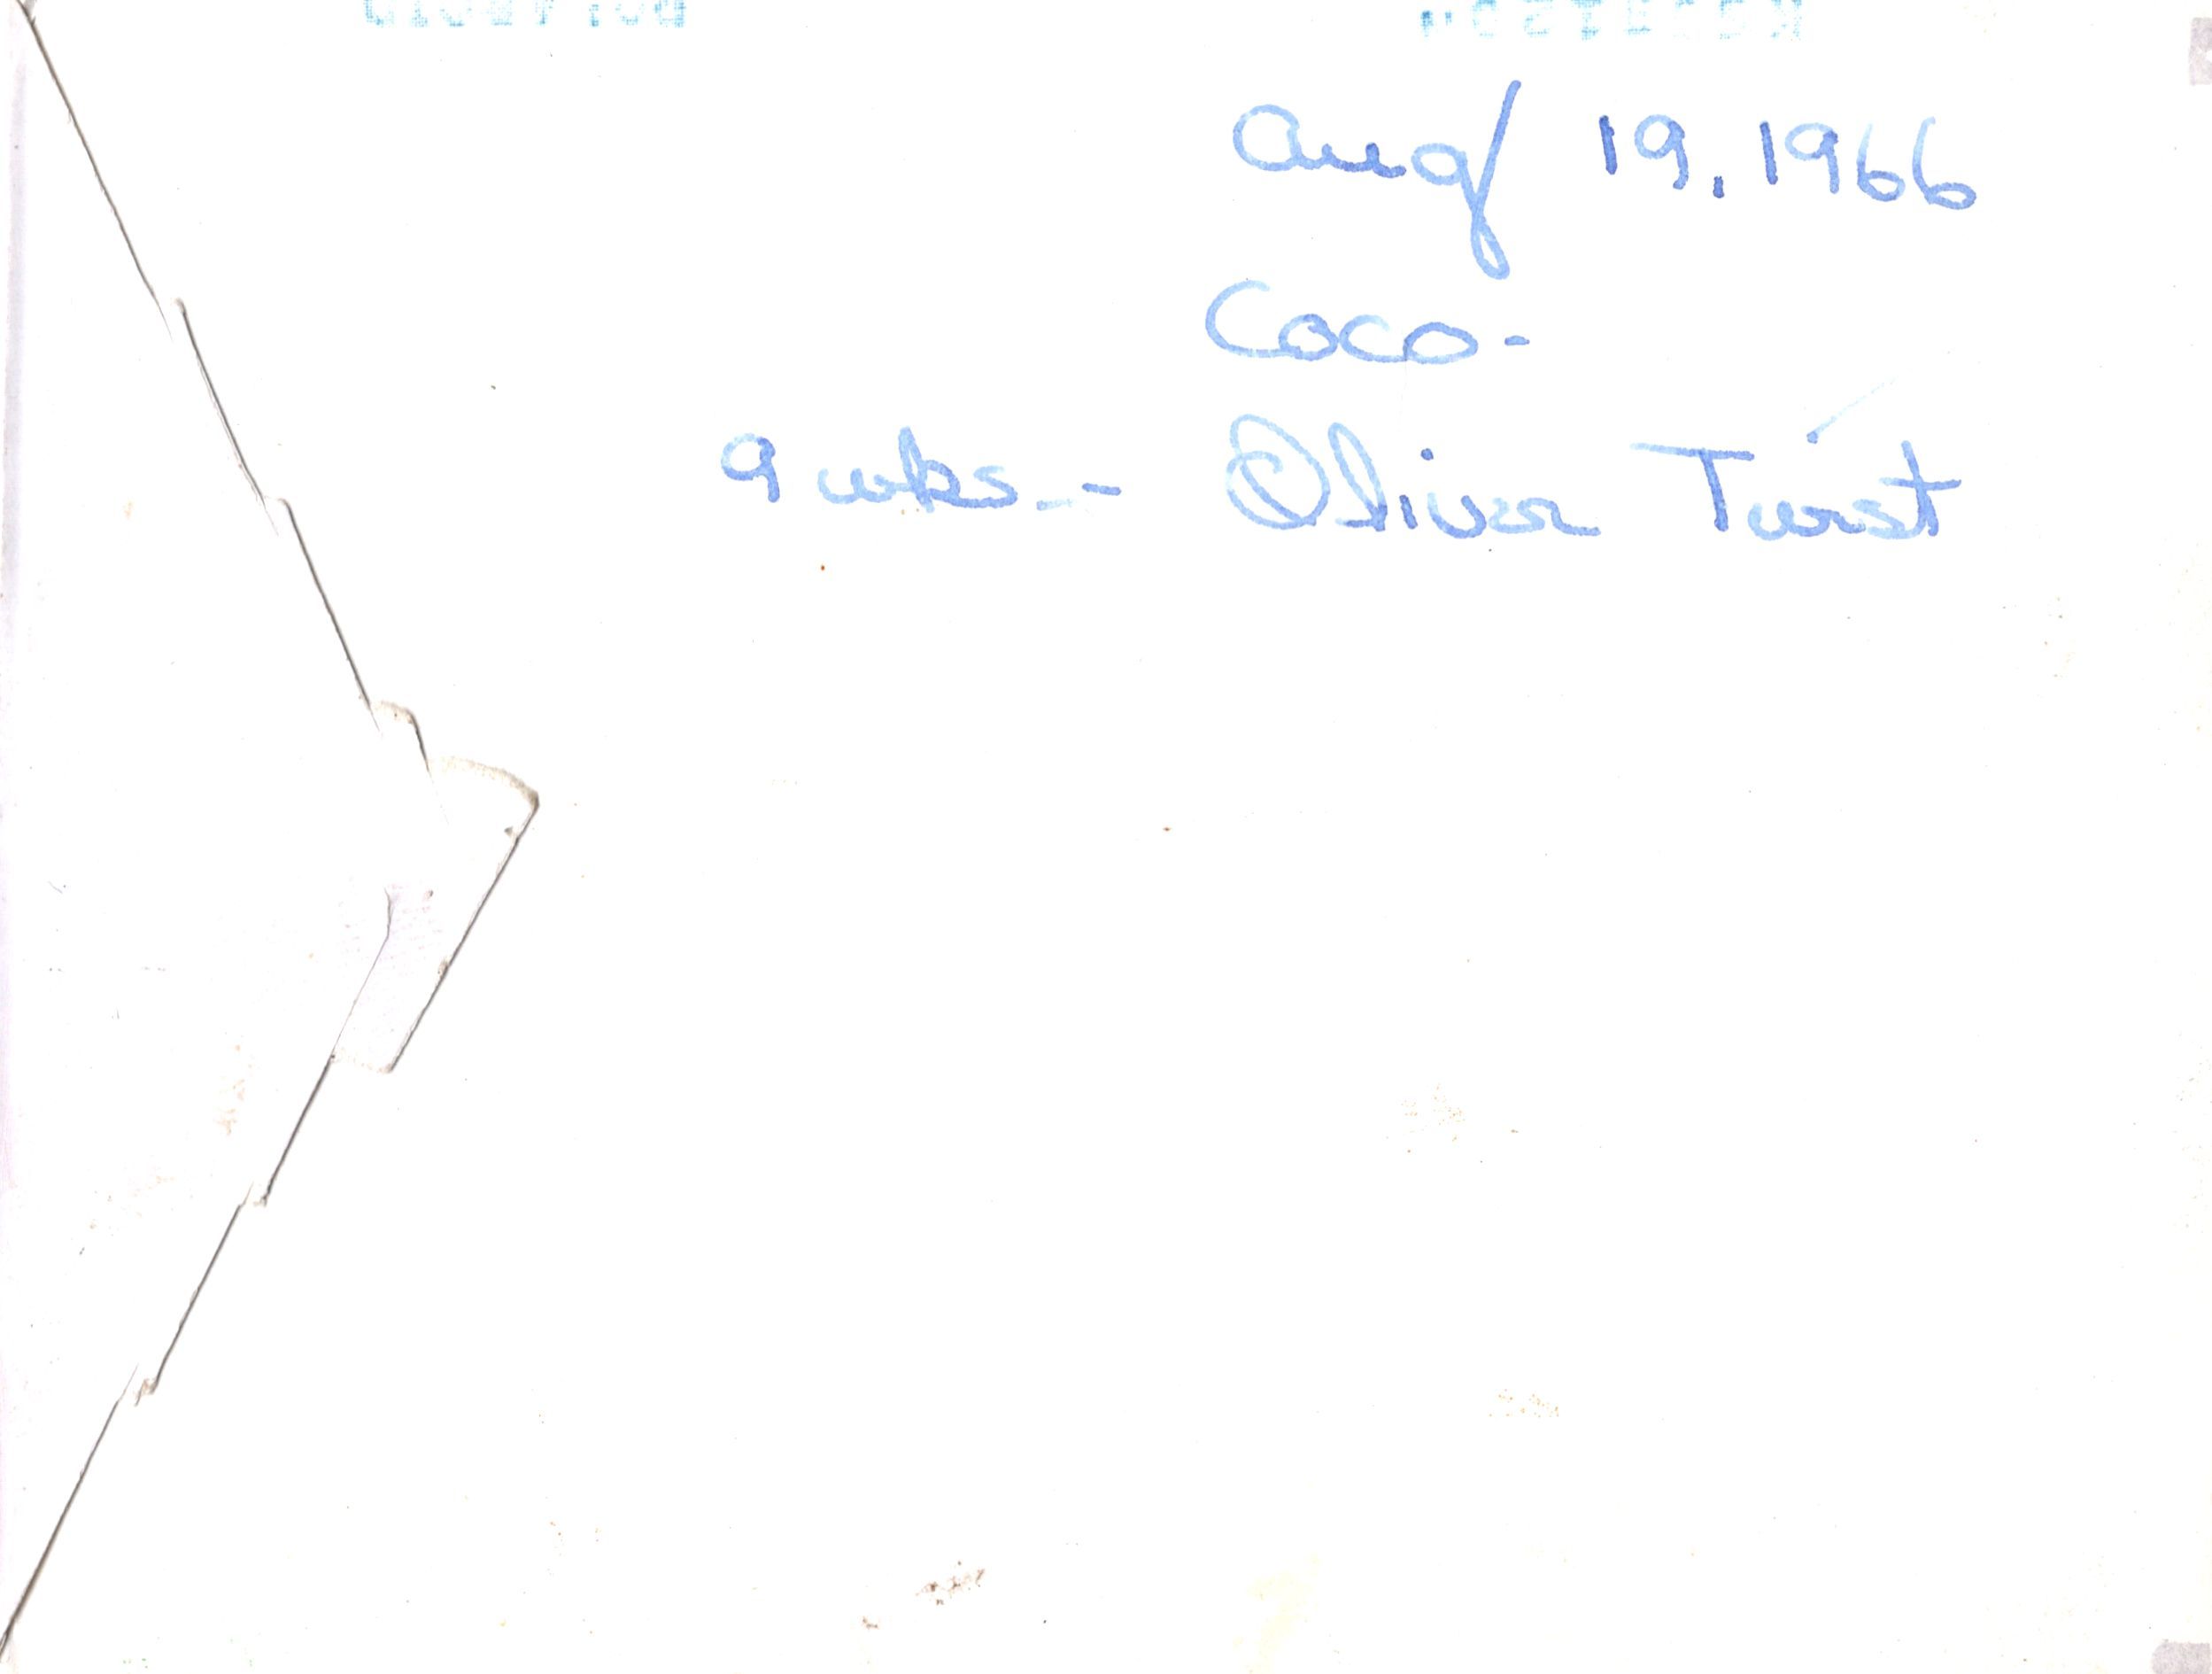 Aug 19, 1966
Coco-
9 wks.- Oliver Twist